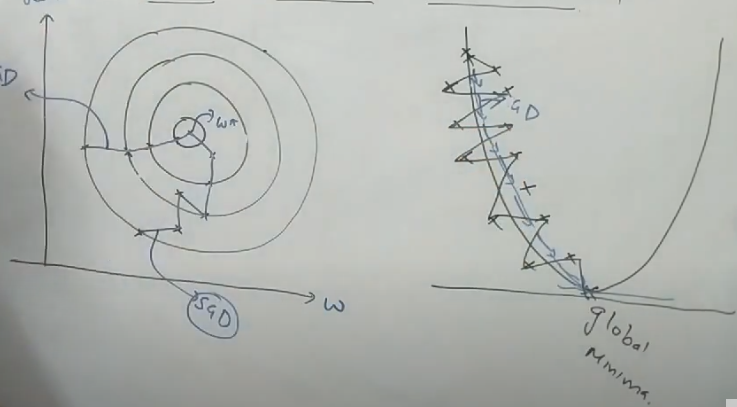 D
W*
SGD
W
GD
global
minima.